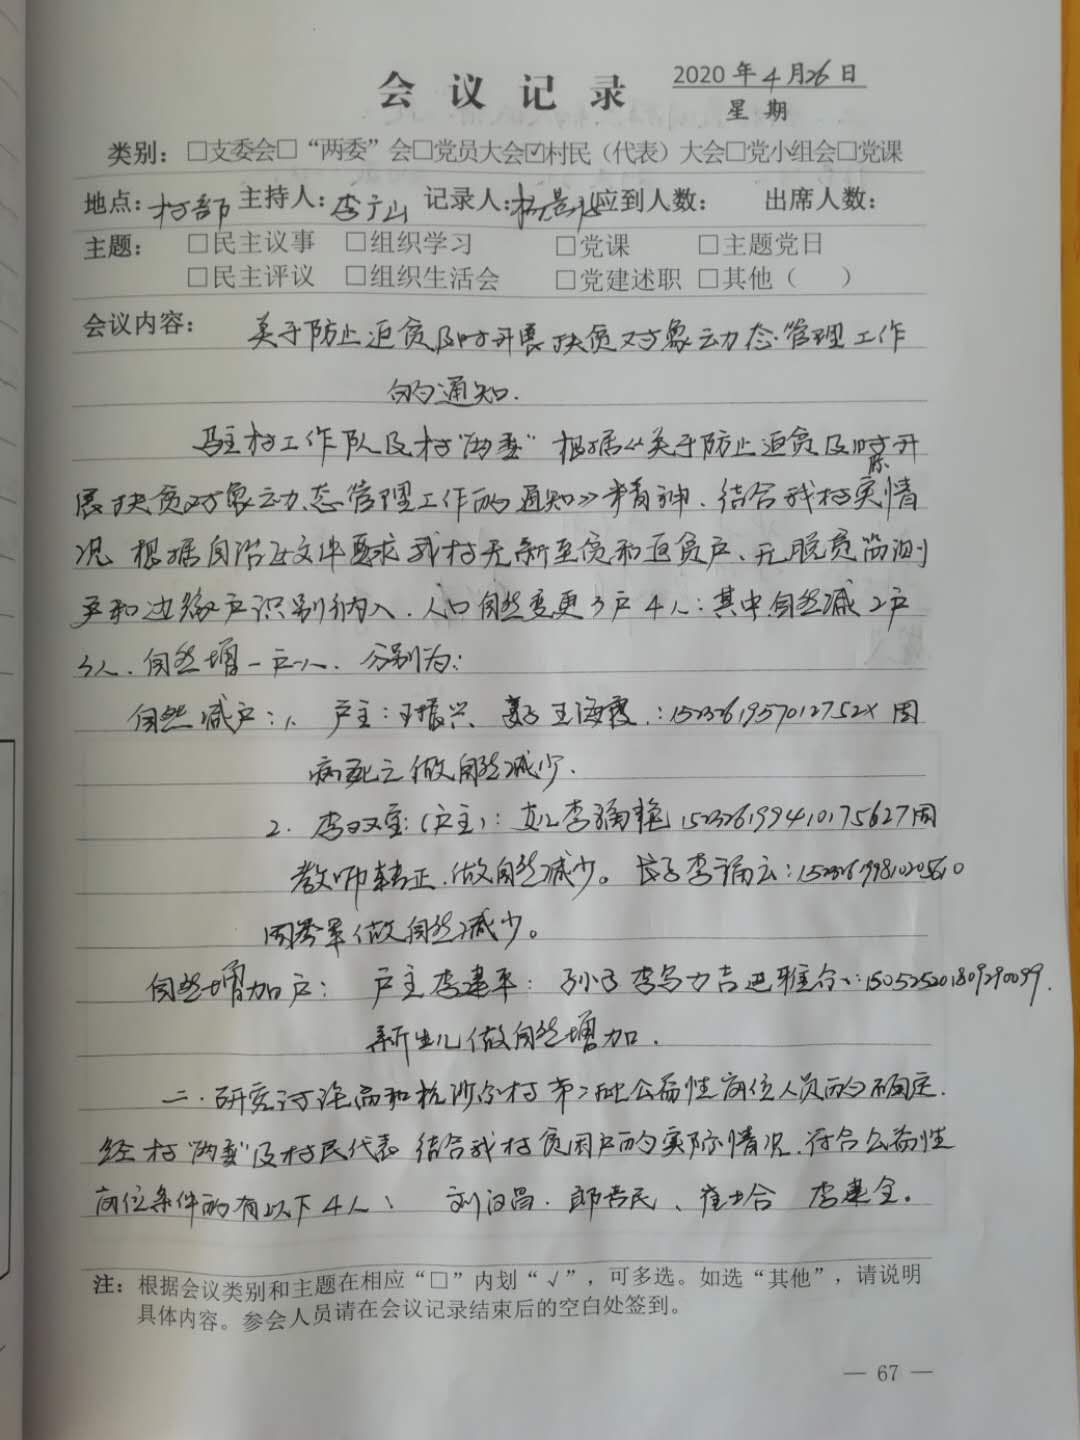 会议记录
2020年4月26日
星期
类别：□支委会□“两委”会□党员大会☑村民（代表）大会□党小组会□党课
地点：村部 主持人：李广山 记录人： 应到人数： 出席人数：
主题： □民主议事 □组织学习 □党课 □主题党日
□民主评议 □组织生活会 □党建述职 □其他（ ）
会议内容： 关于防止返贫及时开展扶贫对象动态管理工作
的通知.
驻村工作队及村“两委”根据《关于防止返贫及时开
展扶贫对象动态管理工作的通知》精神.结合我村实际情
况 根据自治区文件要求我村无新至贫和返贫户、无脱贫监测
户和边缘户识别纳入.人口自然变更3户4人:其中自然减2户
3人.自然增一户一人. 分别为:
自然减户:1、户主:王振兴、妻子王海霞:15232619570127524 因
病死亡做自然减少.
2. 李双宝:(户主):女儿李 152326199410175627因
教师转正.做自然减少。长子李 云:
因参军做自然减少。
自然增加户: 户主李建平: 孙子李乌力吉巴雅尔:150525201809290099.
新生儿做自然增加.
二.研究讨论 村第二批公益性岗位人员的确定.
经村“两委”及村民代表 结合我村贫困户的实际情况.符合公益性
岗位条件的有以下4人: 刘汉昌. 郎吾民、崔 合 李建全。
注：根据会议类别和主题在相应“□”内划“√”，可多选。如选“其他”，请说明
具体内容。参会人员请在会议记录结束后的空白处签到。
— 67 —